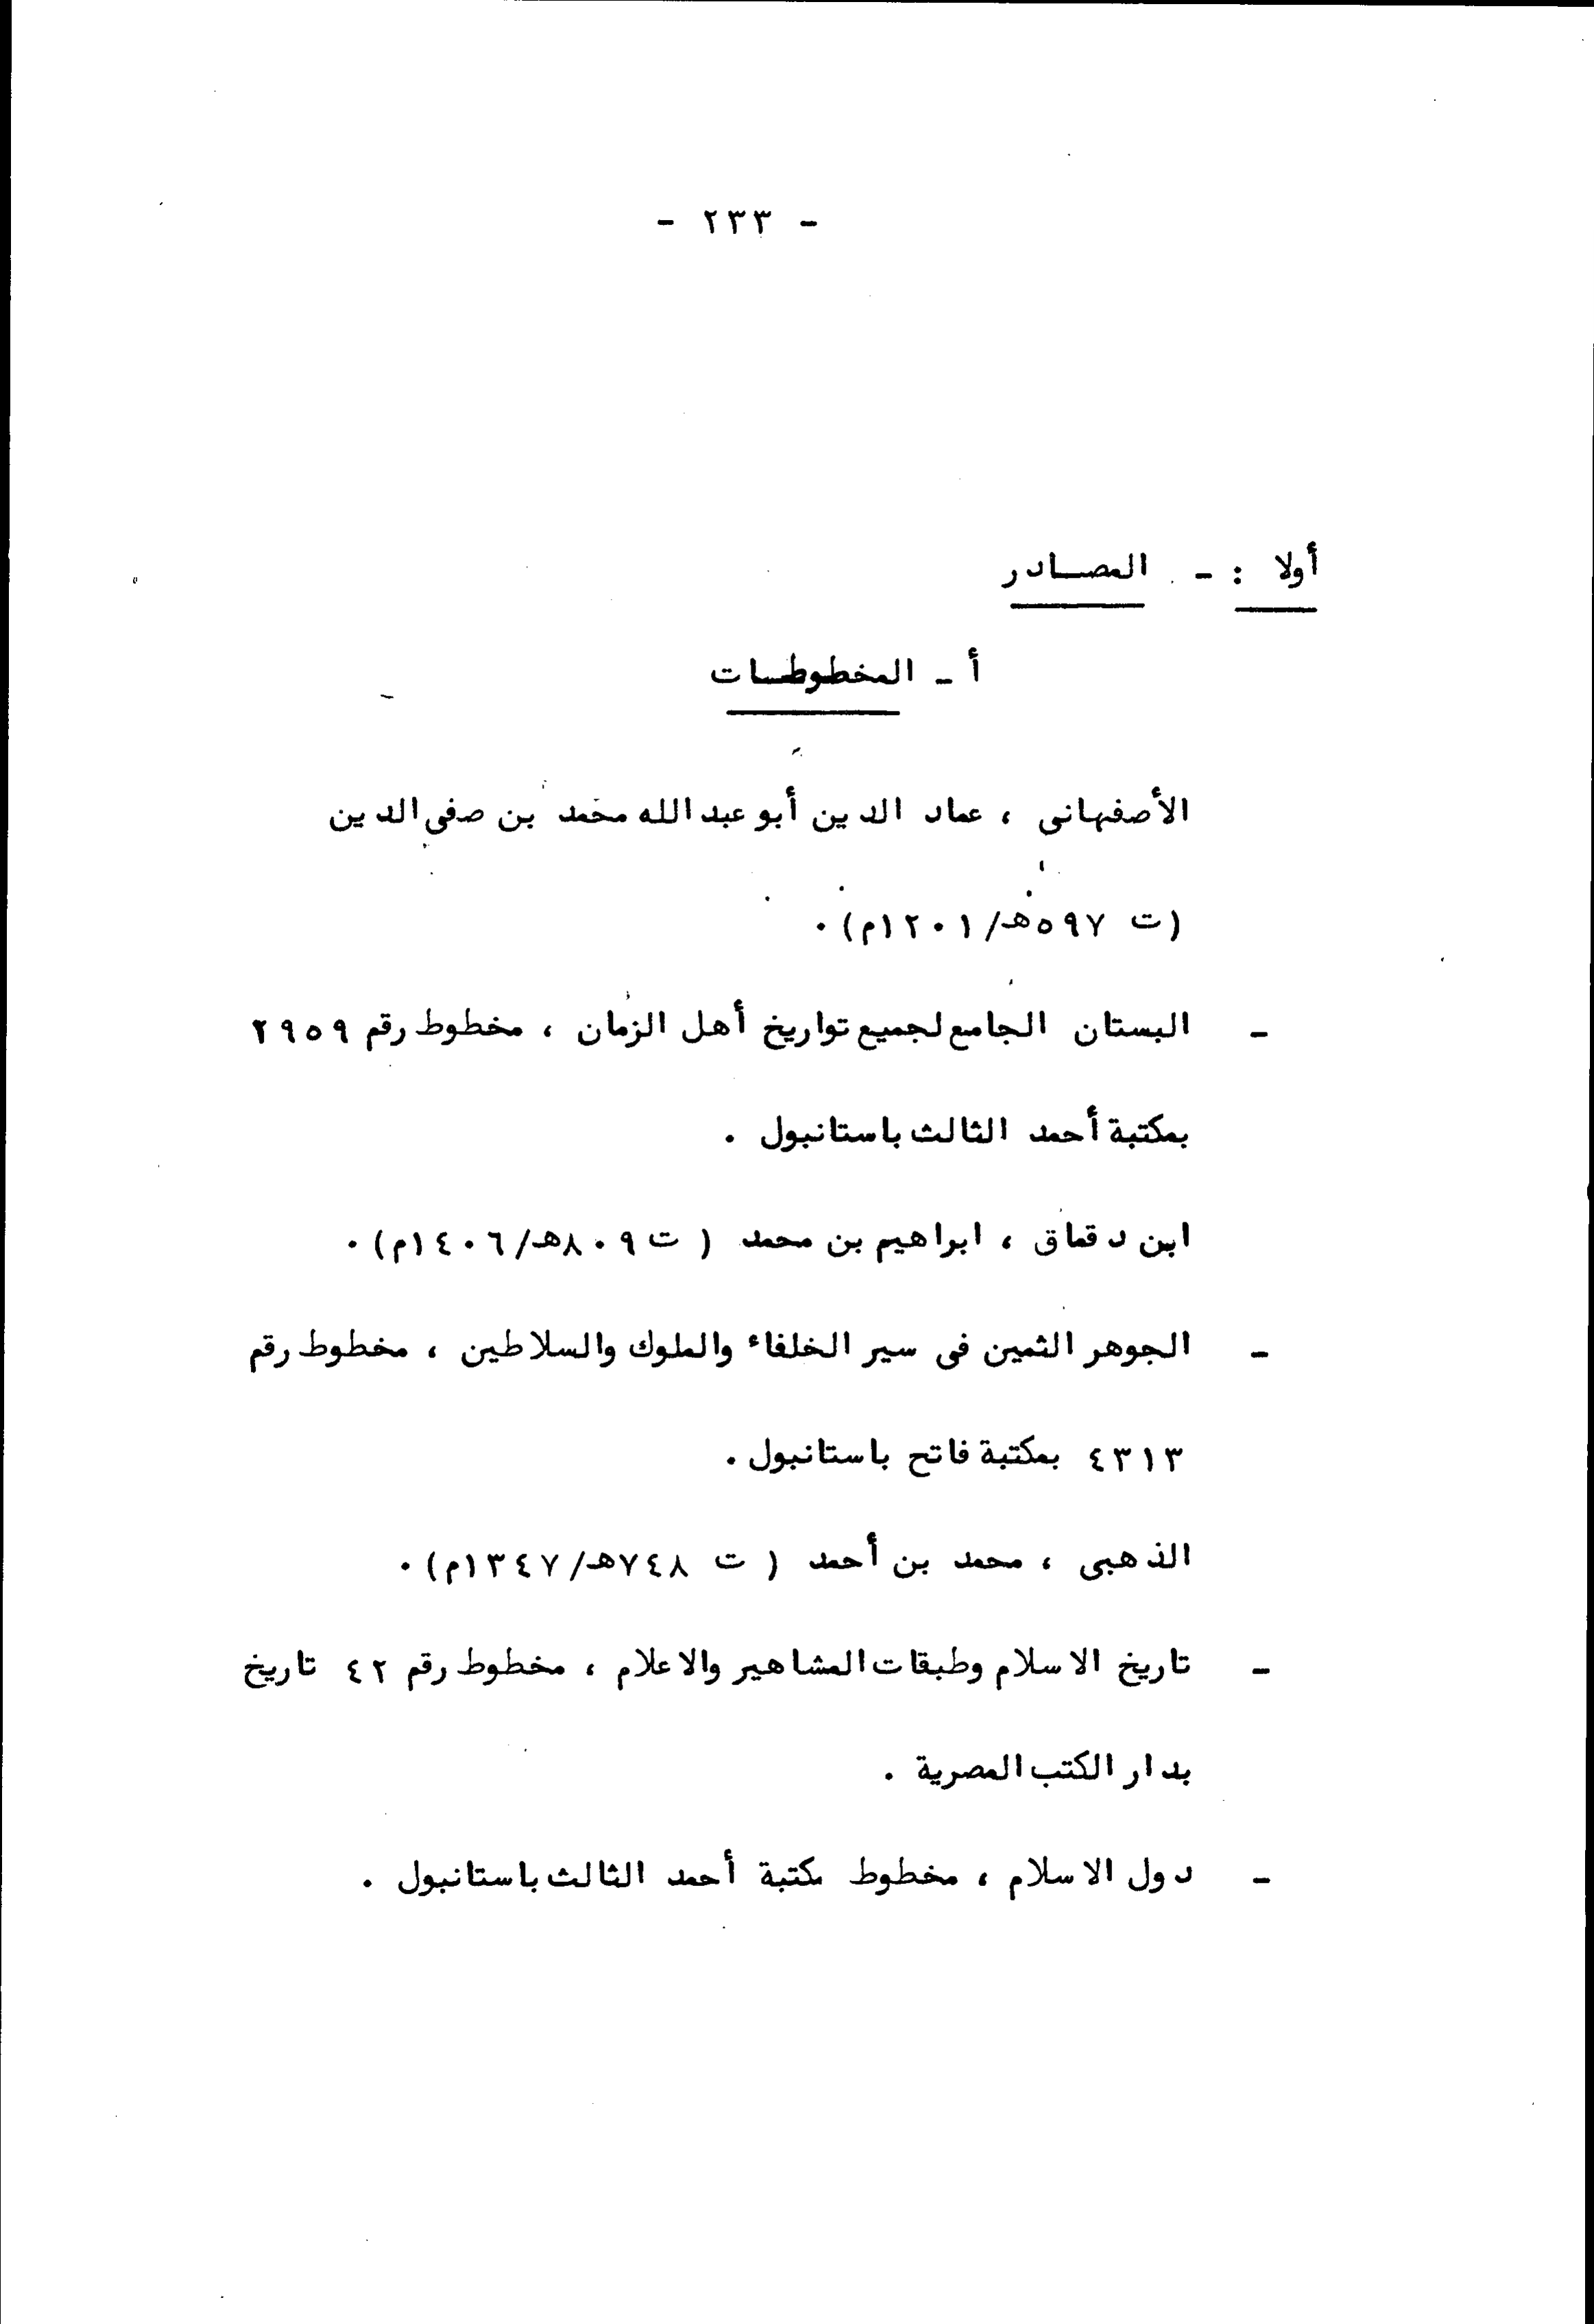 - ٢٣٣ -
أولا : - المصادر
أ - المخطوطات
الأصفهانى ، عماد الدين أبو عبد الله محمد بن صفى الدين
(ت ٥٩٧هـ/١٢٠١م) ٠
- البستان الجامع لجميع تواريخ أهل الزمان ، مخطوط رقم ٢٩٥٩
بمكتبة أحمد الثالث باستانبول ٠
ابن دقماق ، ابراهيم بن محمد ( ت ٨٠٩هـ/١٤٠٦م) ٠
- الجوهر الثمين فى سير الخلفاء والملوك والسلاطين ، مخطوط رقم
٤٣١٣ بمكتبة فاتح باستانبول ٠
الذهبى ، محمد بن أحمد ( ت ٧٤٨هـ/١٣٤٧م) ٠
- تاريخ الاسلام وطبقات المشاهير والاعلام ، مخطوط رقم ٤٢ تاريخ
بدار الكتب المصرية ٠
- دول الاسلام ، مخطوط مكتبة أحمد الثالث باستانبول ٠